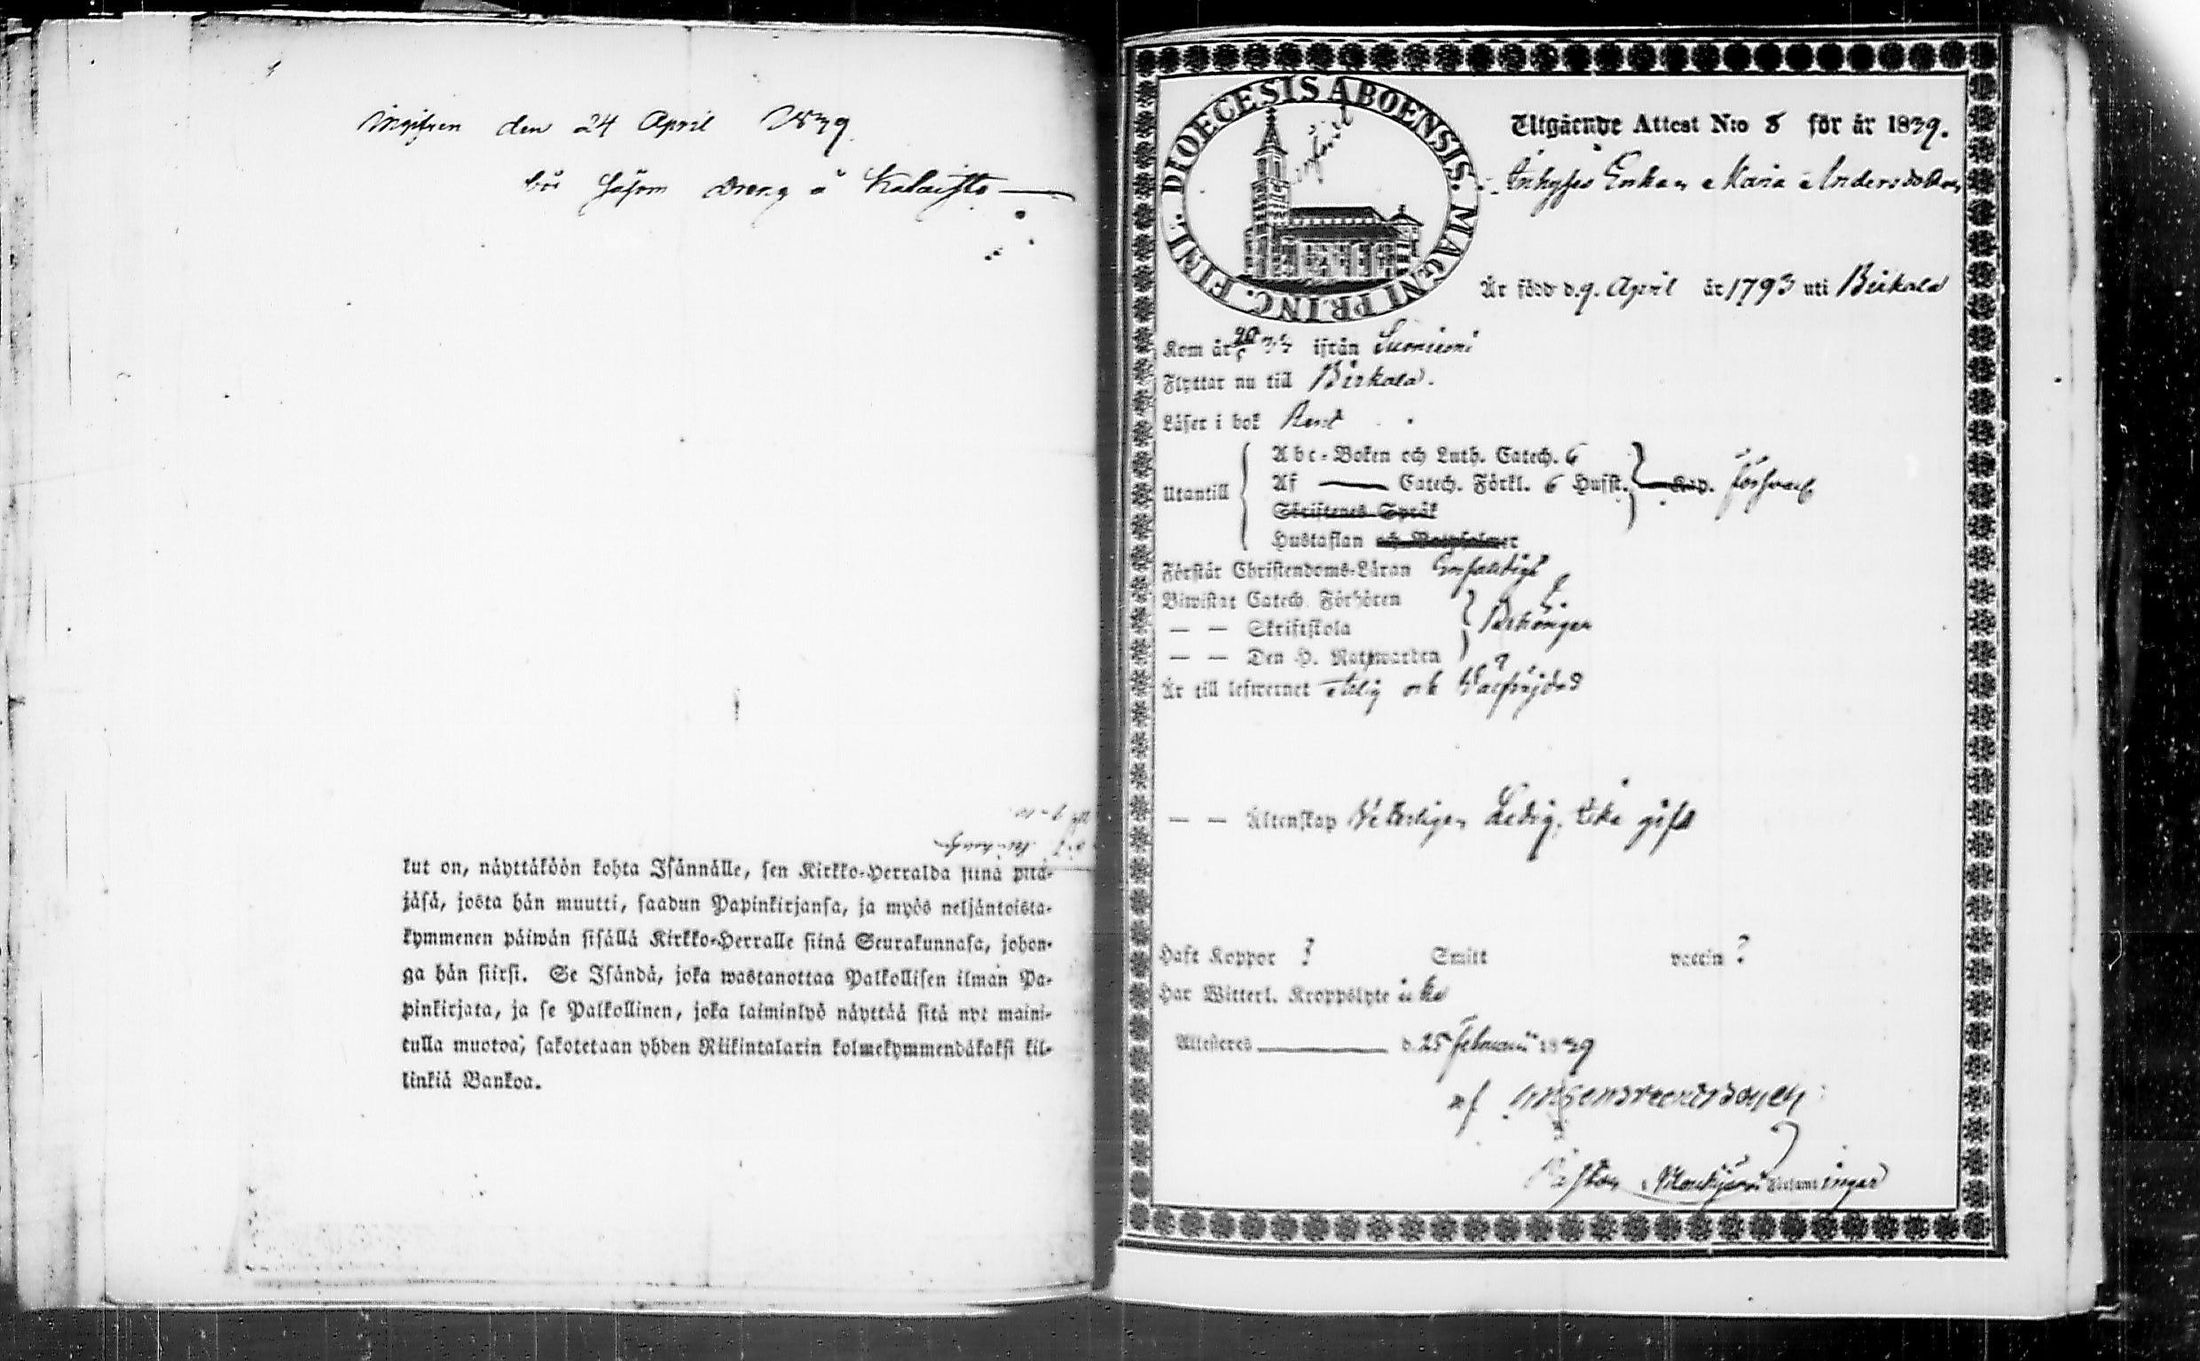 den 24 April 1839
bör såsom dreng å
kut on, näyttäköön kohta Isännälle, sen Kirkko-Herralda siinä pitä-
jäsä, josta hän muutti, saadun Papinkirjansa, ja myös neljäntoista-
kymmenen päiwän sisällä Kirkko-Herralle siinä Seurakunnasa, johon-
ga hän siirsi. Se Isändä, joka wastanottaa Palkollisen ilman Pa-
pinkirjata, ja se Palkollinen, joka laiminlyö näyttää sitä nyt maini-
tulla muotoa, sakotetaan yhden Riikintalarin kolmekymmendäkaksi kil-
linkiä Bankoa.
DIOECESIS ABOENSIS. MAGNI PRINC. FINL.
införd
Utgående Attest N:o 8 för år 1839.
Inhyses Enkan Maria Andersdotter
Är född d. 9. April år 1793 uti Birkala
Kom år ifrån Suoniemi
Flyttar nu till Birkala.
Läser i bok Rent
Utantill
Abc-Boken och Luth. Catech. 6
Af Catech. Förkl. 6 Hufst. Kap. försvarl
Skriftenes Språk
Hustaflan och Botpsalmer
Förstår Christendoms-Läran Enfaldigt
Biwistat Catech. Förhören
— — Skriftskola
— — Den H. Nattwarden
Behörigen
Är till lefwernet ärlig och Välfräjdad
— — Äktenskap Veterligen Ledig, icke gift
Haft Koppor ? Smitt vaccin ?
Har Witterl. Kroppslyte icke
Attesteras d. 25 februarii 1839
af
Pastor i Mouhijärvi Församlingar